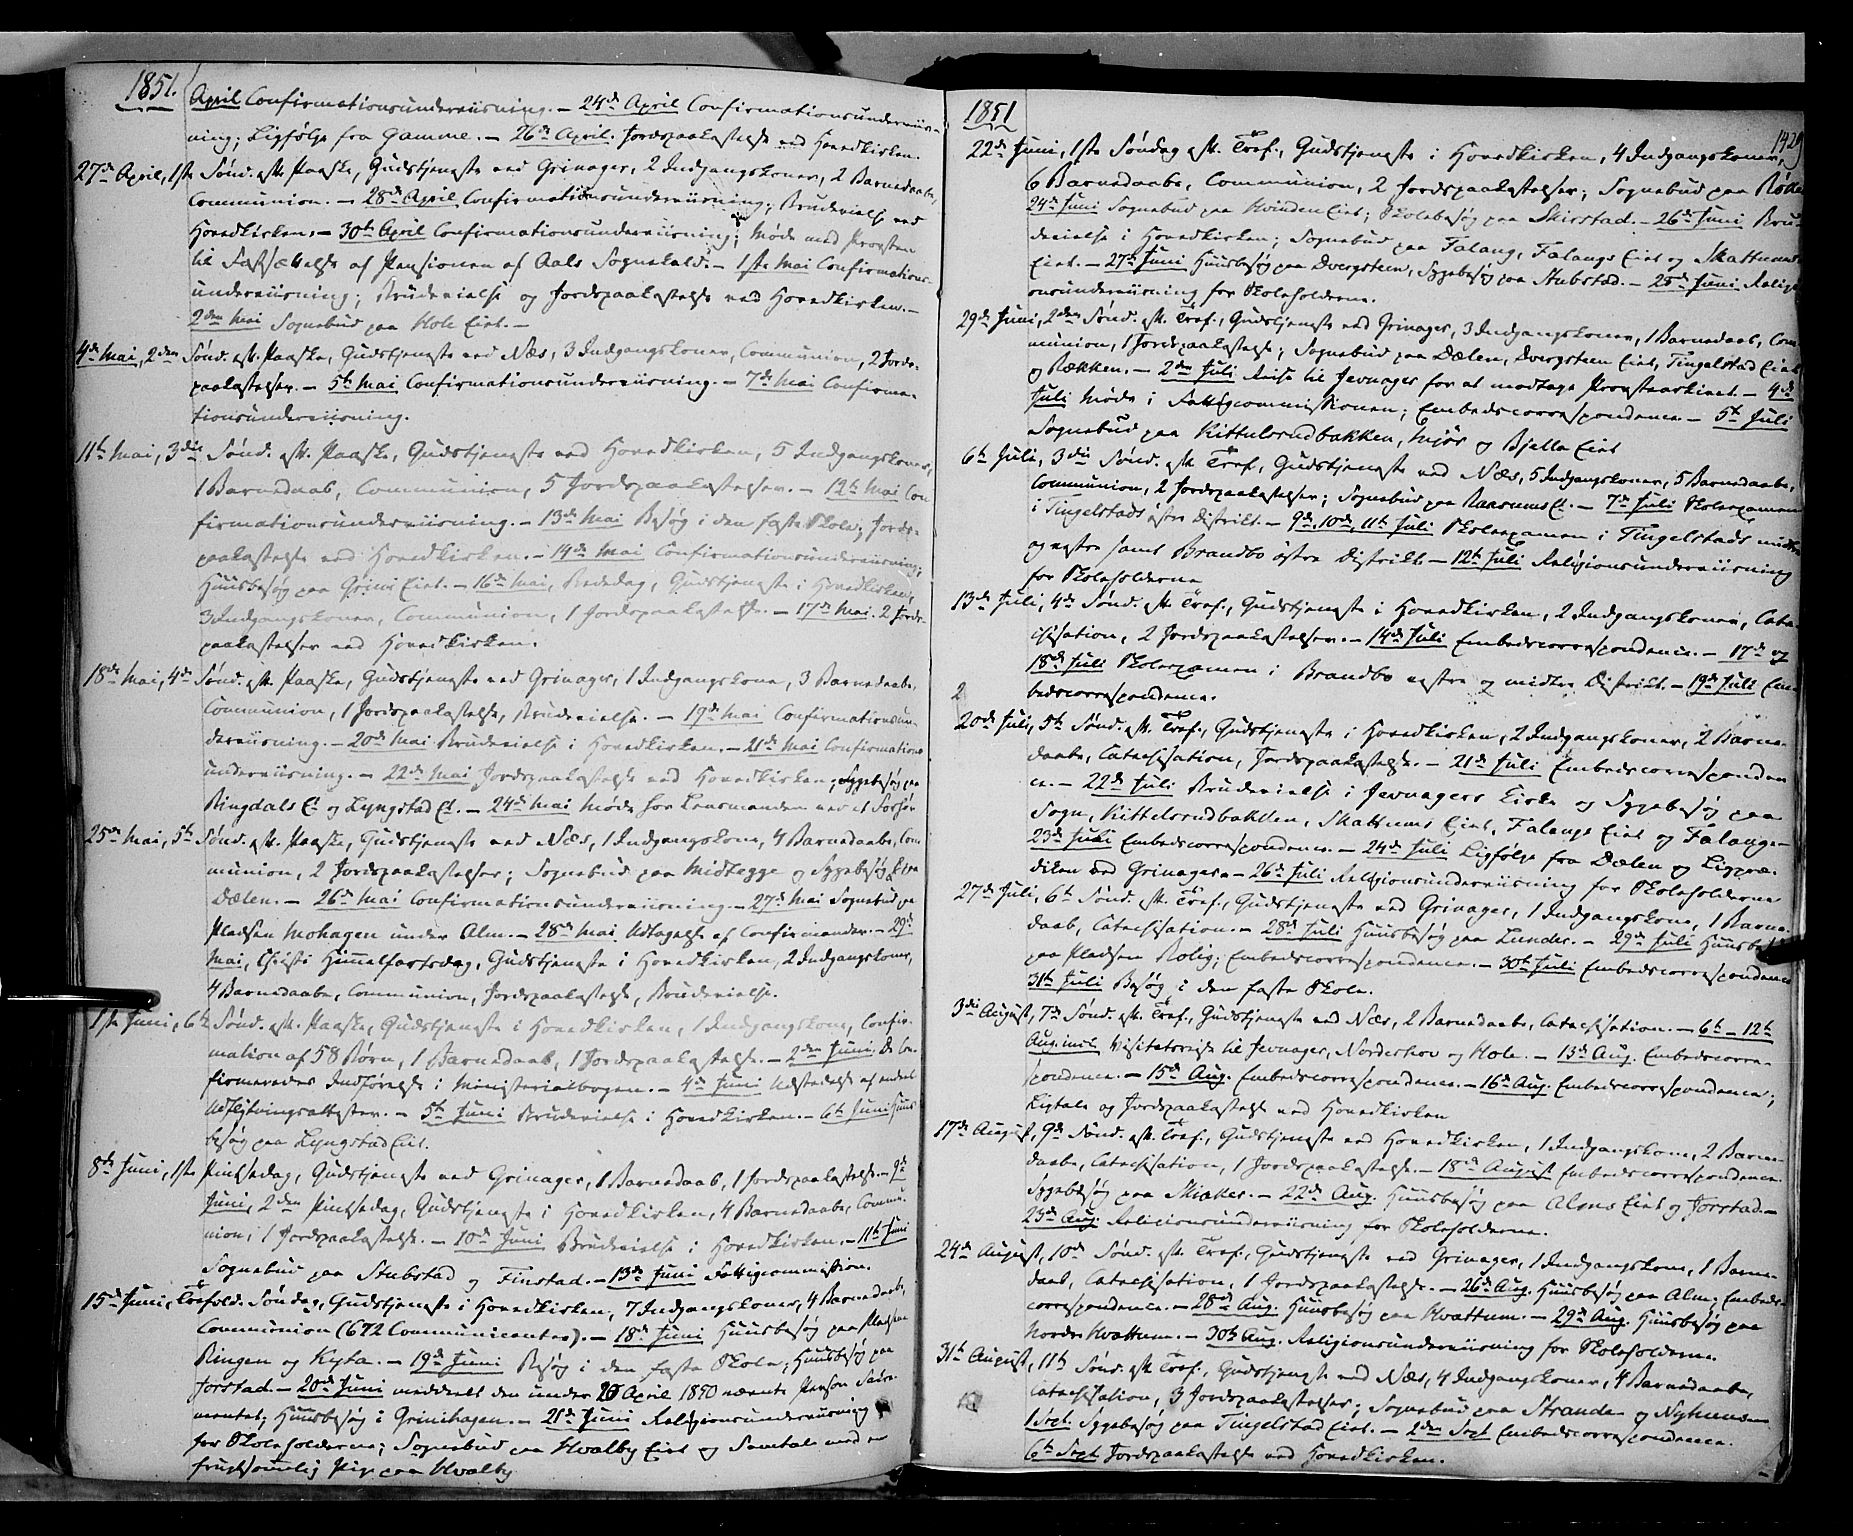 1851.
April Confirmationsunderviisning. – 24de April Confirmationsunderviis-
ning; Ligfølge fra Gamme. – 26de April. Jordspaakastelse ved Hovedkirken.
27de April, 1ste Sønd. eft. Paaske, Gudstjeneste ved Grinager, 2 Indgangskoner, 2 Barnedaabe,
Communion. – 28de April, Confirmationsunderviisning; Brudevielse ved
Hovedkirken. – 30te April Confirmationsunderviisning; Møde med Provsten
til Fastsættelse af Pensionen af Aals Sognekald. – 1ste Mai Confirmations-
underviisning; Brudevielse og Jordspaakastelse ved Hovedkirken. –
2den Mai Sognebud paa Hole Eiet. –
4de Mai, 2den Sønd. eft. Paaske, Gudstjeneste ved Næs, 3 Indgangskoner, Communion, 2 Jords-
paakastelser. – 5te Mai Confirmationsunderviisning. – 7de Mai Confirma-
tionsunderviisning.
11te Mai, 3die Sønd. eft. Paaske, Gudstjeneste ved Hovedkirken, 5 Indgangskoner,
1 Barnedaab, Communion, 5 Jordspaakastelser. – 12te Mai Con-
firmationsunderviisning. – 13de Mai Besøg i den faste Skole; Jords-
paakastelse ved Hovedkirken. – 14de Mai Confirmationsunderviisning;
Huusbesøg paa Grini Eiet. – 16de Mai, Bededag, Gudstjeneste i Hovedkirken,
3 Indgangskoner, Communion, 1 Jordspaakastelse. – 17de Mai. 2 Jords-
paakastelser ved Hovedkirken.
18de Mai, 4de Sønd. eft. Paaske, Gudstjeneste ved Grinager, 1 Indgangskone, 3 Barnedaabe,
Communion, 1 Jordspaakastelse, Brudevielse. – 19de Mai Confirmationsun-
derviisning. – 20de Mai Brudevielse i Hovedkirken. – 21de Mai Confirmations-
underviisning. – 22de Mai Jordspaakastelse ved Hovedkirken; Sygebesøg paa
Ringdals Et. og Lyngstad Et. – 24de Mai Møde hos Lensmanden ved et Forhør
25de Mai, 5te Sønd. eft. Paaske, Gudstjeneste ved Næs, 1 Indgangskone, 4 Barnedaabe, Com-
munion, 2 Jordspaakastelser; Sognebud paa Midtegge og Sygebesøg paa
Dælen. – 26de Mai Confirmationsunderviisning. – 27de Mai Sognebud paa
Pladsen Mohagen under Alm. – 28de Mai Udtagelse af Confirmander. – 29de
Mai, Christi Himmelfartsdag, Gudstjeneste i Hovedkirken, 2 Indgangskoner,
4 Barnedaabe, Communion, Jordspaakastelse, Brudevielse.
1ste Juni, 6te Sønd. eft. Paaske, Gudstjeneste i Hovedkirken, 1 Indgangskone, Confir-
mation af 58 Børn, 1 Barnedaab, 1 Jordspaakastelse. – 2den Juni, De Con-
firmeredes Indførelse i Ministerialbogen. – 4de Juni Udstedelse af endeel
Udflytningsattester. – 5te Juni Brudevielse i Hovedkirken. – 6te Juni Huus-
besøg paa Lyngstad Eiet.
8de Juni, 1ste Pintsedag, Gudstjeneste ved Grinager, 1 Barnedaab, 1 Jordspaakastelse. – 9de
Juni, 2den Pintsedag, Gudstjeneste i Hovedkirken, 4 Barnedaabe, Commu-
nion, 1 Jordspaakastelse. – 10de Juni Brudevielse i Hovedkirken. – 11te Juni
Sognebud paa Stubstad og Finstad. – 13de Juni Fattigcommission.
15de Juni, Trefold. Søndag, Gudstjeneste i Hovedkirken, 7 Indgangskoner, 4 Barnedaabe,
Communion (672 Communicanter). – 18de Juni Huusbesøg paa Pladsene
Ringen og Kyta. – 19de Juni Besøg i den faste Skole; Huusbesøg paa
Jorstad. – 20de Juni meddeelt den under 26 April 1850 nævnte Person Sacra-
mentet; Huusbesøg i Grinihagen. – 21de Juni Religionsunderviisning
for Skoleholderne; Sognebud paa Hvalby Eiet og Samtale med en
frugtsommelig Pige paa Hvalby
1851
142
22de Juni, 1ste Søndag eft. Tref., Gudstjeneste i Hovedkirken, 4 Indgangskoner,
6 Barnedaabe, Communion, 2 Jordspaakastelser; Sognebud paa
24de Juni Sognebud paa Hvinden Eiet; Skolebesøg paa Skirstad. – 26de Juni Bru-
devielse i Hovedkirken; Sognebud paa Falang, Falangs Eiet og Skattums
Eiet. – 27de Juni Huusbesøg paa Dvergsteen, Sygebesøg paa Stubstad. – 28de Juni Religi-
onsunderviisning for Skoleholderne.
29de Juni, 2den Sønd. eft. Tref., Gudstjeneste ved Grinager, 3 Indgangskoner, 1 Barnedaab, Com-
munion, 1 Jordspaakastelse; Sognebud paa Dælen, Dvergsteen Eiet, Tingelstad Eiet
og Rækken. – 2den Juli Reise til Jevnager for at modtage Provstearkivet. – 4de
Juli Møde i Fattigcommissionen; Embedscorrespondence – 5te Juli
Sognebud paa Kittelsrudbakken, Mjør og Bjella Eiet
6te Juli, 3die Sønd. eft. Tref., Gudstjeneste ved Næs, 5 Indgangskoner, 5 Barnedaabe,
Communion, 2 Jordspaakastelser; Sognebud paa Raasums Et. – 7de Juli Skoleexamen
i Tingelstads østre District. – 9de, 10de, 11te Juli Skoleexamen i Tingelstads midtre
og vestre samt Brandbo østre District. – 12te Juli Religionsunderviisning
for Skoleholderne
13de Juli, 4de Sønd. eft. Tref., Gudstjeneste i Hovedkirken, 2 Indgangskoner, Cate-
chisation, 2 Jordspaakastelser. – 14de Juli Embedscorrespondence. – 17de og
18de Juli Skoleexamen i Brandbo vestre og midtre District. – 19de Juli Em-
bedscorrespondence.
20de Juli, 5te Sønd. eft. Tref., Gudstjeneste i Hovedkirken, 2 Indgangskoner, 2 Barne-
daabe, Catechisation, Jordspaakastelse. – 21de Juli Embedscorresponden-
ce. – 22de Juli Brudevielse i Jevnagers Kirke og Sygebesøg paa
Sogn, Kittelsrudbakken, Skattums Eiet, Falangs Eiet og Falang. –
23de Juli Embedscorrespondence. – 24de Juli Ligfølge fra Dælen og Ligpræ-
diken ved Grinager. – 26de Juli Religionsunderviisning for Skoleholderne
27de Juli, 6te Sønd. eft. Tref., Gudstjeneste ved Grinager, 1 Indgangskone, 1 Barne-
daab, Catechisation. – 28de Juli Huusbesøg paa Lunder. – 29de Juli Huusbesøg
paa Pladsen Rolig; Embedscorrespondence. – 30te Juli Embedscorrespondence
31te Juli Besøg i den faste Skole.
3die August, 7de Sønd. eft. Tref., Gudstjeneste ved Næs, 2 Barnedaabe, Catechisation. – 6te – 12te
Aug. incl. Visitatsreise til Jevnager, Norderhov og Hole. – 13de Aug. Embedscorre-
spondence. – 15de Aug. Embedscorrespondence. – 16de Aug. Embedscorrespondence;
Ligtale og Jordspaakastelse ved Hovedkirken
17de August, 9de Sønd. eft. Tref., Gudstjeneste ved Hovedkirken, 1 Indgangskone, 2 Barne-
daabe, Catechisation, 1 Jordspaakastelse. – 18de August Embedscorrespondence.
Sygebesøg paa Skiaker. – 22de Aug. Huusbesøg paa Alms Eiet og Jorstad. –
23de Aug. Religionsunderviisning for Skoleholderne.
24de August, 10de Sønd. eft. Tref., Gudstjeneste ved Grinager, 1 Indgangskone, 1 Barne-
daab, Catechisation, 1 Jordspaakastelse. – 26de Aug. Huusbesøg paa Alm; Embeds-
correspondence. – 28de Aug. Huusbesøg paa Hvattum. – 29de Aug. Huusbesøg paa
Nordre Hvattum. – 30te Aug. Religionsunderviisning for Skoleholderne.
31te August, 11te Sønd. eft. Tref., Gudstjeneste ved Næs, 4 Indgangskoner, 4 Barnedaabe,
Catechisation, 3 Jordspaakastelser; Sognebud paa Stranden og
1 Sept. Sygebesøg paa Tingelstad Eiet. – 2den Sept Embedscorrespondence.
6te Sept Jordspaakastelse ved Hovedkirken.